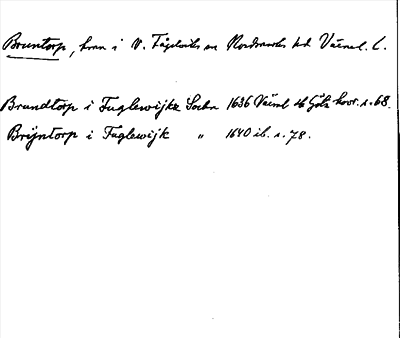 Bruntorp, hmn i V. Fågelviks sn Nordmarks hd Värml. l.
Brundtorp i Fuglewijkz Sochn 1636 Värml o Götz kvar. s. 68.
Brÿntorp i Fuglewijk " 1640 ib. s. 78.